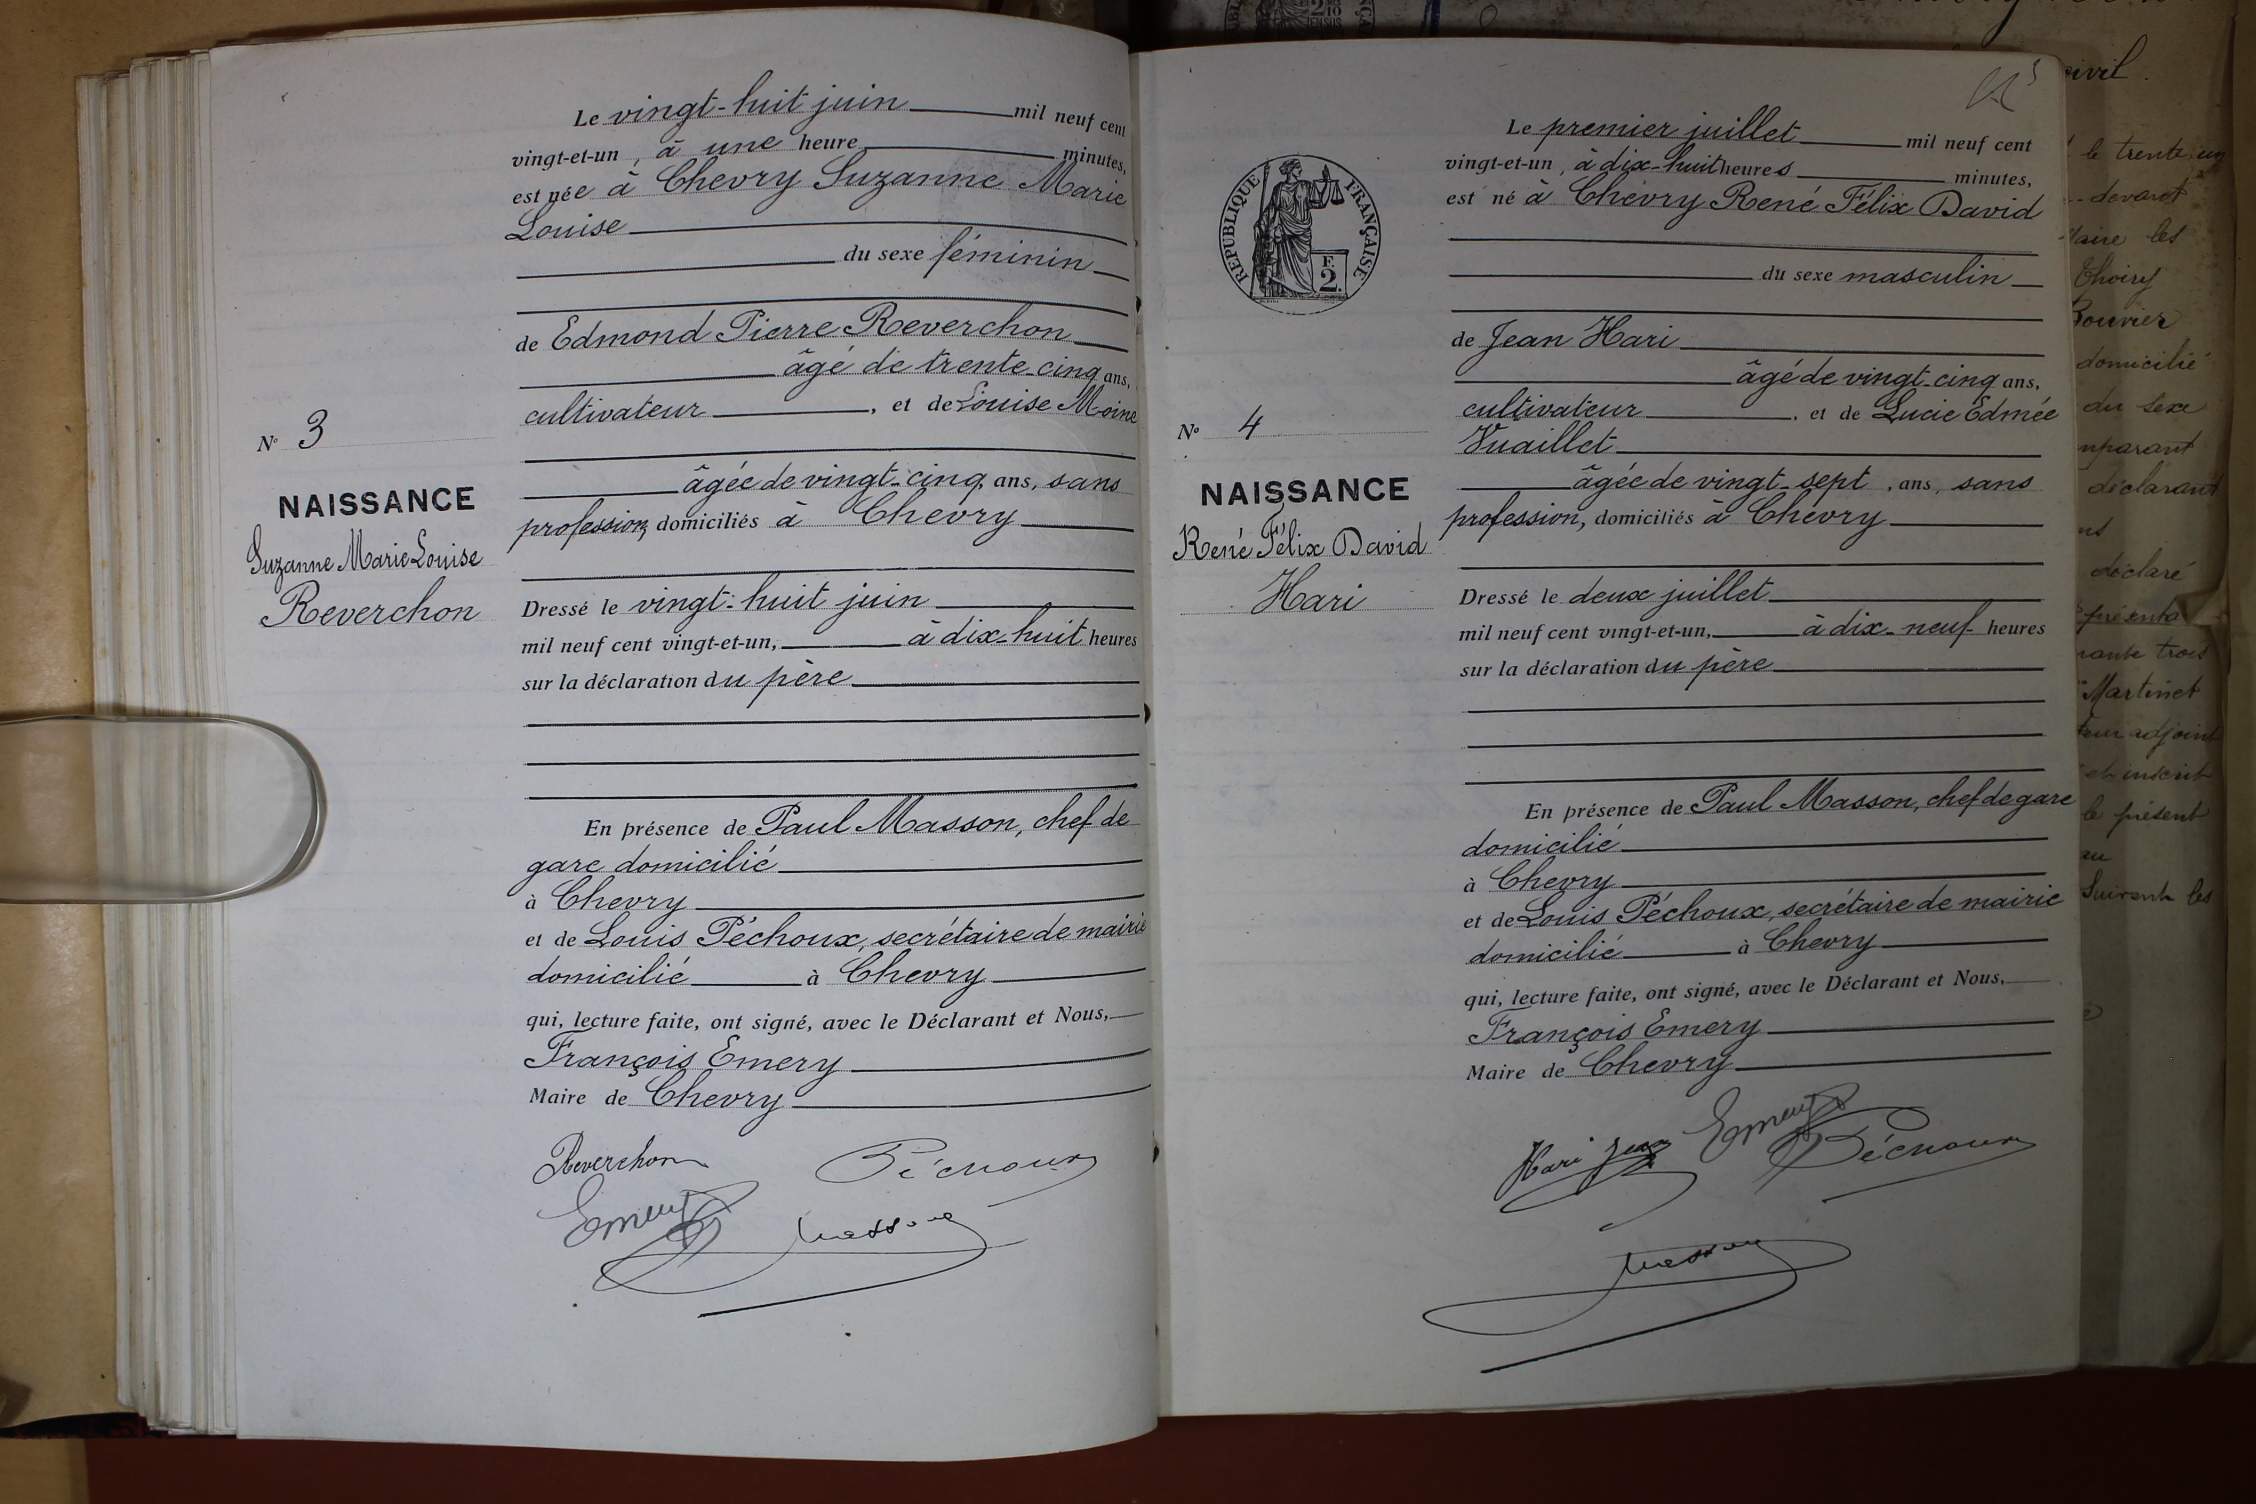 Le vingt-huit juin mil neuf cent
vingt-et-un, à une heure minutes,
est née à Chevry Suzanne Marie
Louise
du sexe féminin
de Edmond Pierre Reverchon
âgé de trente-cinq ans,
cultivateur, et de Louise Moine
âgée de vingt-cinq ans, sans
profession, domiciliés à Chevry
Dressé le vingt-huit juin
mil neuf cent vingt-et-un, à dix-huit heures
sur la déclaration du père
En présence de Paul Masson, chef de
gare domicilié
à Chevry
et de Louis Péchoux, secrétaire de mairie
domicilié à Chevry
qui, lecture faite, ont signé, avec le Déclarant et Nous,
François Emery
Maire de Chevry
Reverchon Péchoux
Emery Masson
N° 3
NAISSANCE
Suzanne Marie Louise
Reverchon
RÉPUBLIQUE FRANÇAISE
F.
2.
Le premier juillet mil neuf cent
vingt-et-un, à dix-huit heures minutes,
est né à Chevry René Félix David
du sexe masculin
de Jean Hari
âgé de vingt-cinq ans,
cultivateur, et de Lucie Edmée
Vuaillet
âgée de vingt-sept, ans, sans
profession, domiciliés à Chevry
Dressé le deux juillet
mil neuf cent vingt-et-un, à dix-neuf heures
sur la déclaration du père
En présence de Paul Masson, chef de gare
domicilié
à Chevry
et de Louis Péchoux, secrétaire de mairie
domicilié à Chevry
qui, lecture faite, ont signé, avec le Déclarant et Nous,
François Emery
Maire de Chevry
Hari Jean Emery Péchoux
Masson
N° 4
NAISSANCE
René Félix David
Hari
civil.
le trente un
devant
Maire les
Thoiry
Bouvier
domicilié
du sexe
déclarant
déclaré
trois
Martinet
adjoint
et inscrit
le présent
au
Suivent les